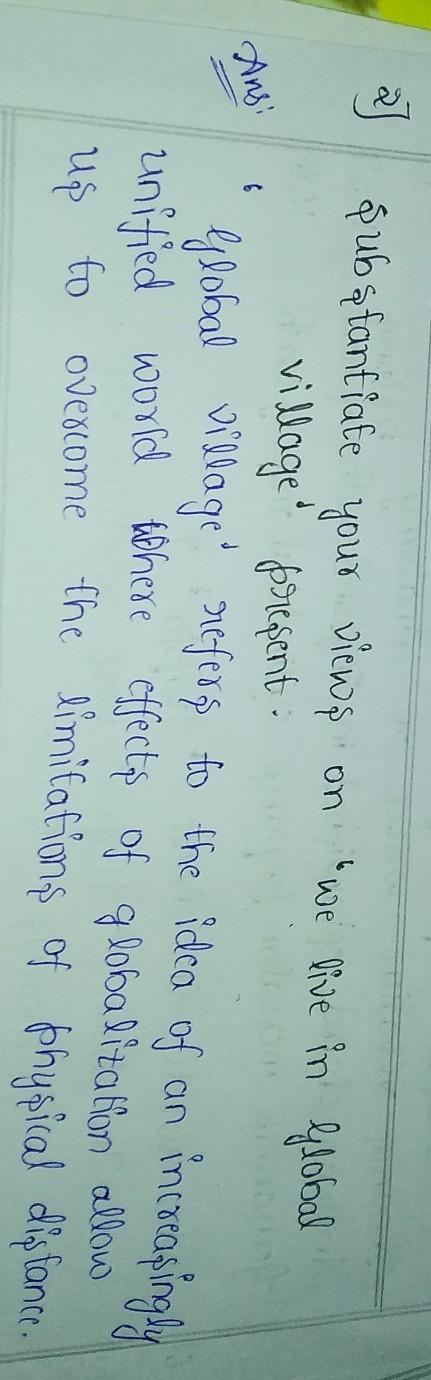 2] Substantiate your views on 'we live in Global
village' present:
Ans:
'Global village' refers to the idea of an increasingly
unified world where effects of globalization allow
us to overcome the limitations of physical distance.